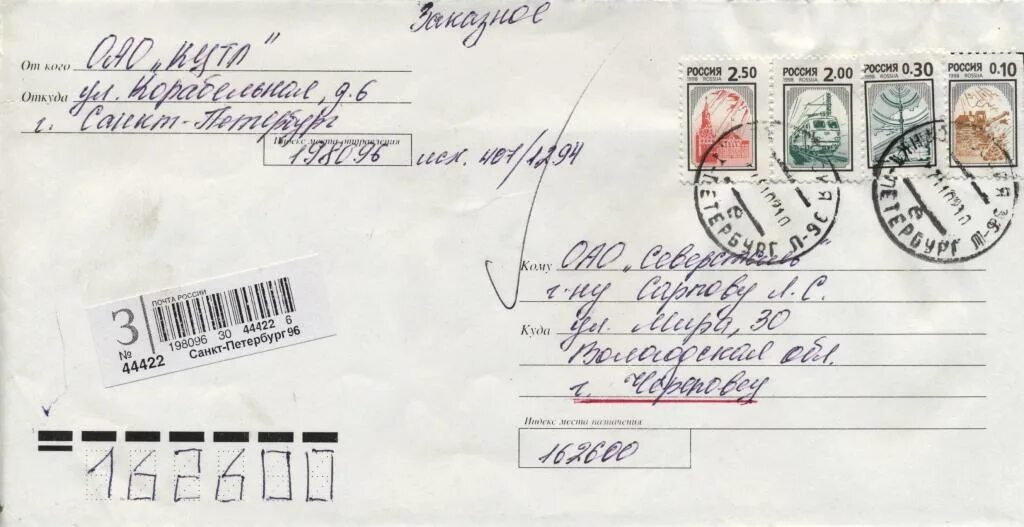 Заказное
От кого ОАО „КЦТЛ"
Откуда ул. Корабельная, д. 6
г. Санкт-Петербург
Индекс места отправления
198096 исх. 407/1294
РОССИЯ 2.50
1998 ROSSIJA
РОССИЯ 2.00
1998 ROSSIJA
РОССИЯ 0.30
1998 ROSSIJA
РОССИЯ 0.10
1998 ROSSIJA
С-ПЕТЕРБУРГ П-96
ПЕТЕРБУРГ П-96
ПОЧТА РОССИИ
З
№ 44422
198096 30 44422 6
Санкт-Петербург 96
Кому ОАО „Северсталь"
г-ну Сарпову Л. С.
Куда ул. Мира, 30
Вологодская обл.
г. Череповец
Индекс места назначения
162600
162600